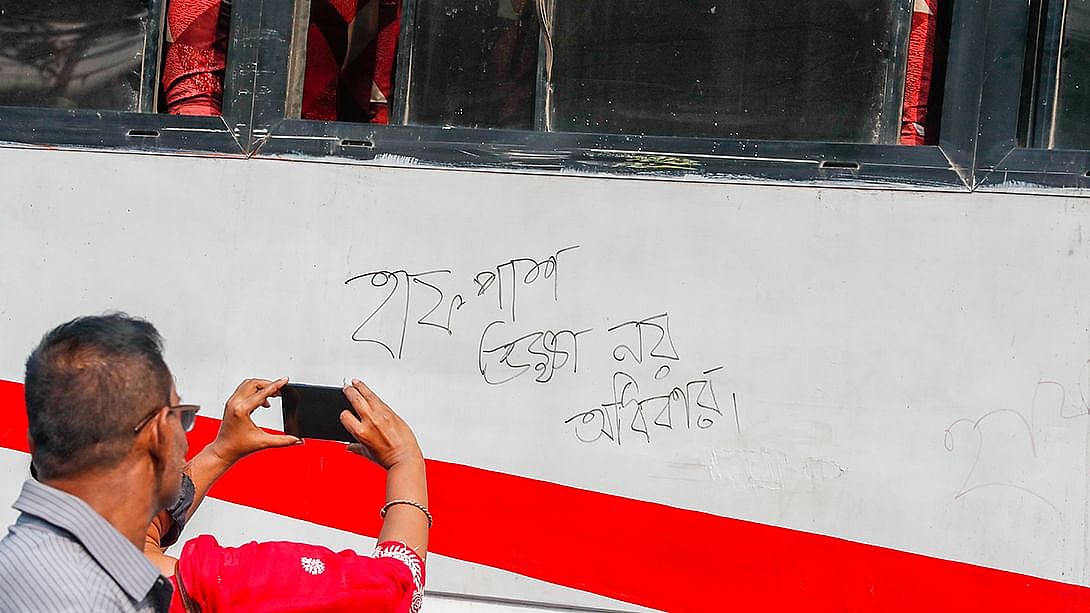 হাফ পাশ
ভিক্ষা নয়
অধিকার।